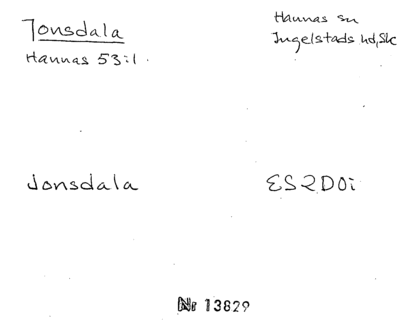 Jonsdala
Hannas 53:1.
Hannas sn
Ingelstads hd, Sk
Jonsdala
ES2D0i
Nr 13829